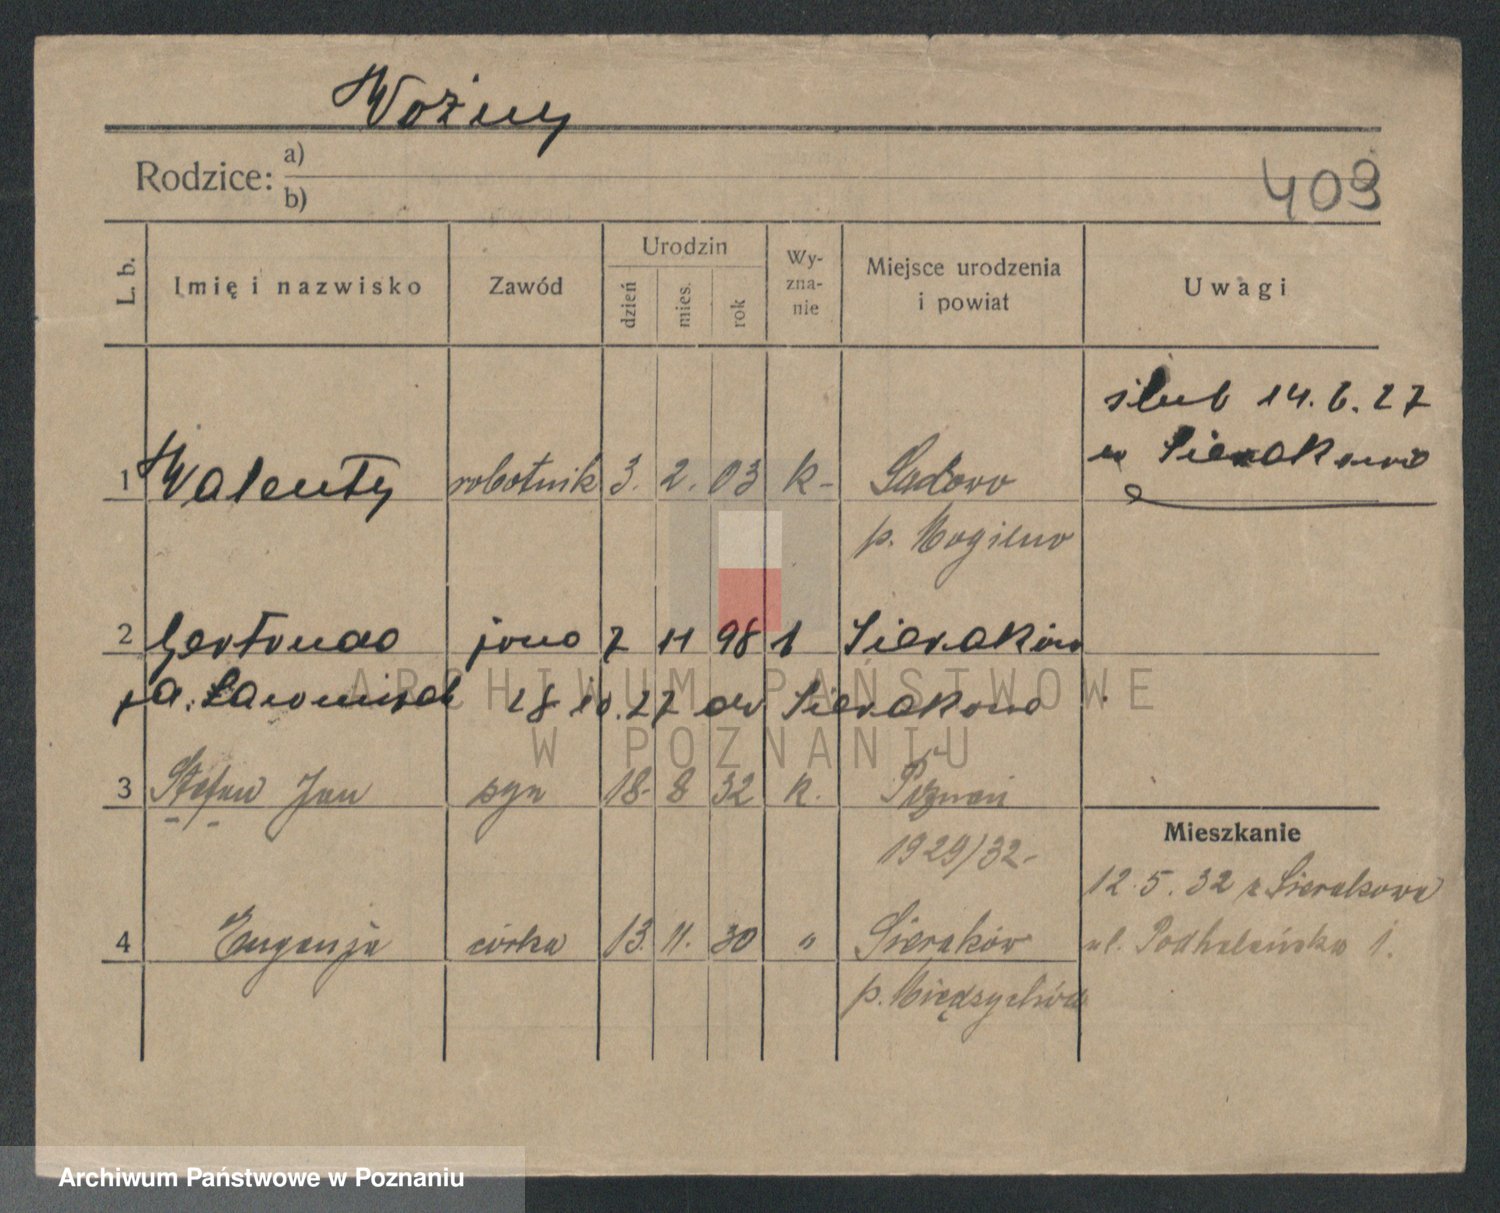 Woźny
Rodzice: a)
b)
409
L. b. Imię i nazwisko Zawód Urodzin dzień mies. rok Wy-zna-nie Miejsce urodzenia i powiat Uwagi
ślub 14. 6. 27
w Sierakowie
1 Walenty robotnik 3. 2. 03 k- Sadowo
p. Mogilno
2 Gertruda żona 7 11 98 Sieraków
18 10. 27 Sierakowo
ARCHIWUM PAŃSTWOWE
W POZNANIU
3 Stefan Jan syn 18. 8 32 k. Poznań
Mieszkanie
1929/32-
12. 5. 32 z Sierakowa
4 Eugenja córka 13. 11. 30 " Sieraków
ul. Podhalańska 1.
p. Międzychód
Archiwum Państwowe w Poznaniu